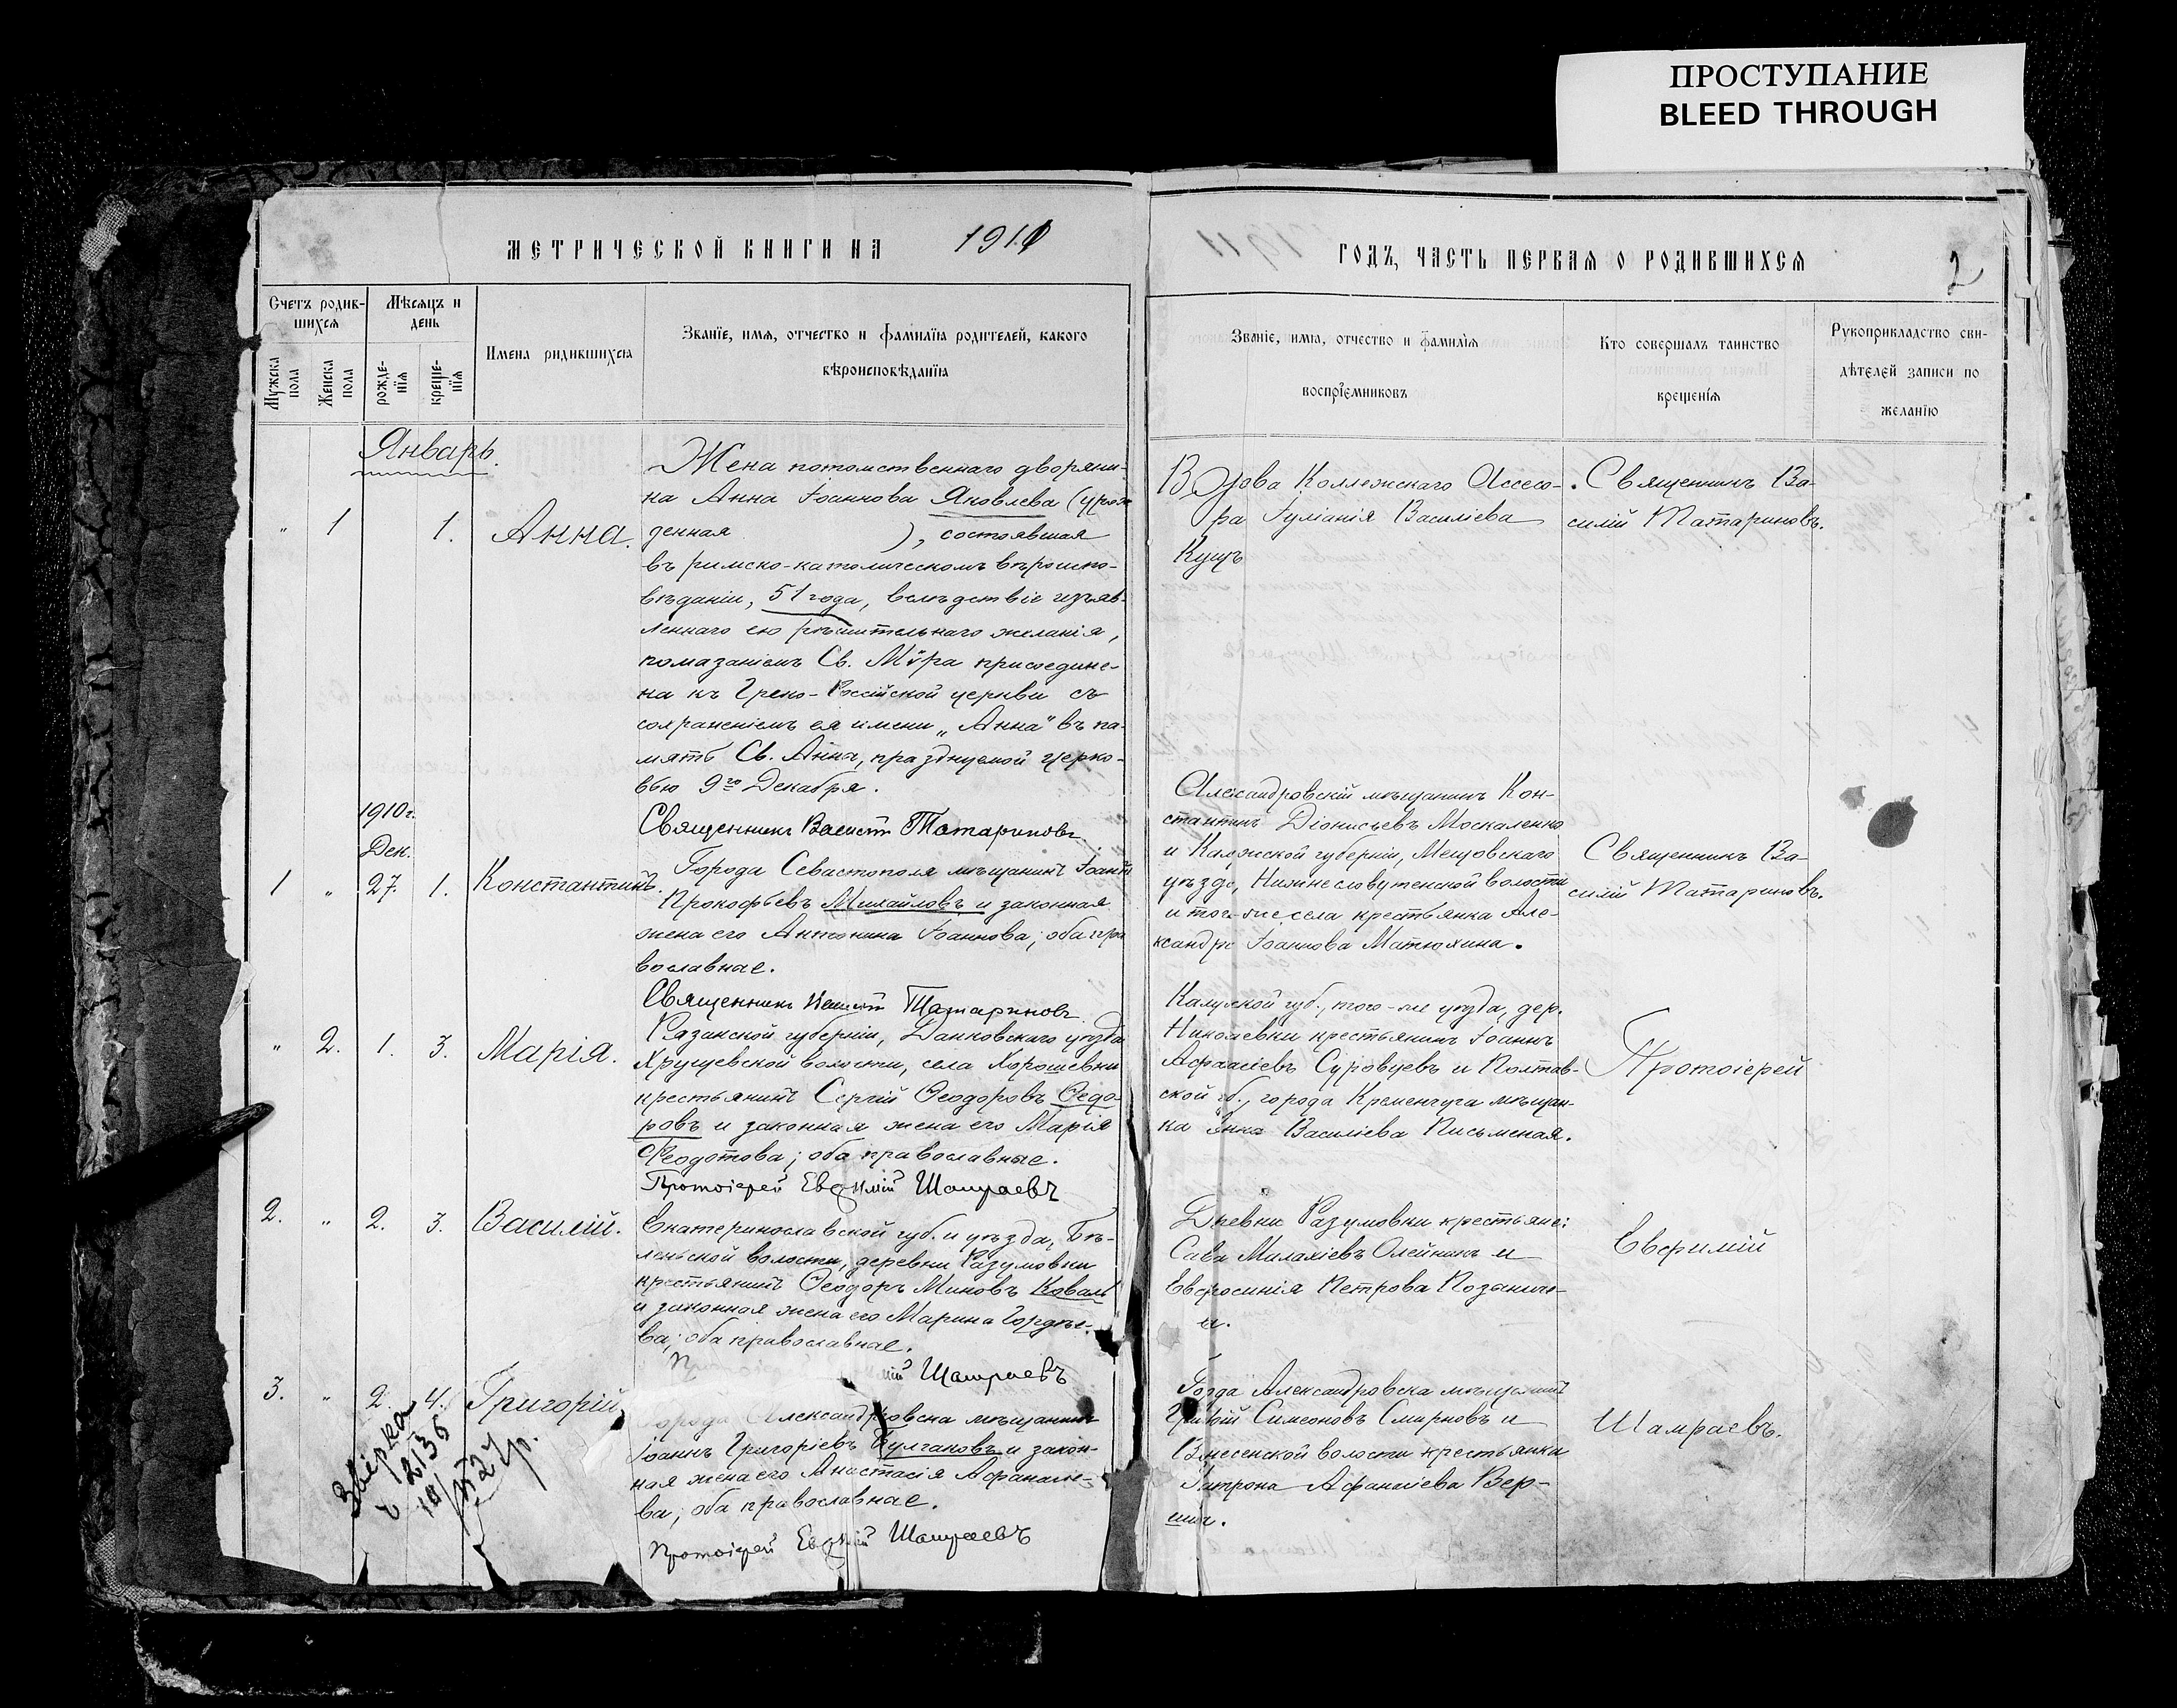 ПРОСТУПАНИЕ
BLEED THROUGH
МЕТРИЧЕСКОЙ КНИГИ НА 1911
ГОДЪ, ЧАСТЬ ПЕРВАЯ О РОДИВШИХСЯ
2
Счетъ родив-
шихся
Мѣсяцъ и
день
Мужска
пола
Женска
пола
рожде-
нія
креще-
нія
Имена родившихся
Званіе, имя, отчество и фамилія родителей, какого
вѣроисповѣданія
Званіе, имя, отчество и фамилія
воспріемниковъ
Кто совершалъ таинство
крещенія
Рукоприкладство сви-
дѣтелей записи по
желанію
Январь.
" 1 1. Анна.
Жена потомственнаго дворяни-
на Анна Іоаннова Яковлева (урож
денная ), состоявшая
въ римско-католическомъ вѣроиспо-
вѣданіи, 51 года, вслѣдствіе изъяв-
леннаго ею рѣшительнаго желанія,
помазаніемъ Св. Мѵра присоедине-
на къ Греко-Россійской церкви съ
сохраненіемъ ея имени „Анна" въ па-
мять Св. Анны, празднуемой церко-
вью 9го Декабря.
Священникъ Василій Татариновъ
Вдова Коллежскаго Ассесо-
ра Іуліанія Василіева
Кущъ
Священникъ Ва-
силій Татариновъ.
1910 г.
Дек.
1 " 27. 1. Константинъ.
Города Севастополя мѣщанинъ Іоаннъ
Прокофьевъ Михайловъ и законная
жена его Антонина Іоаннова; оба пра
вославные.
Священникъ Василій Татариновъ
Александровскій мѣщанинъ Кон-
стантинъ Діонисьевъ Москаленко
и Калужской губерніи, Мещовскаго
уѣзда, волости
и того-же села крестьянка Але-
ксандра Іоаннова Матюхина.
Священникъ Ва-
силій Татариновъ.
" 2. 1. 3. Марія.
Рязанской губерніи, Данковскаго уѣзда
Хрущевской волости, села Хорошевки
крестьянинъ Сергій Ѳеодоровъ Ѳедо-
ровъ и законная жена его Марія
Ѳеодотова; оба православные.
Протоіерей Евѳимій Шамраевъ
Калужской губ., того-же уѣзда, дер.
Николаевки крестьянинъ Іоаннъ
Суровцевъ и Полтав-
ской губ., города Кременчуга мѣщан-
ка Анна Василіева Письменая.
Протоіерей
2. " 2. 3. Василій.
Екатеринославской губ. и уѣзда, Бѣ-
леньской волости, деревни Разумовки
крестьянинъ Ѳеодоръ Миновъ Коваль
и законная жена его Марина Гордѣе-
ва; оба православные.
Шамраевъ
Древни Разумовки крестьяне:
Сава Малахіевъ Олейникъ и
Евфросинія Петрова
Евфимій
3. " 2. 4. Григорій
Города Александровска мѣщанинъ
Іоаннъ Григоріевъ Булгаковъ и закон-
ная жена его Анастасія Афанасіе-
ва; оба православные.
Протоіерей Евѳимій Шамраевъ
Города Александровска мѣщанинъ
Симеоновъ Смирновъ и
волости крестьянка
Афанасіева Вер-
Шамраевъ.
Звірка